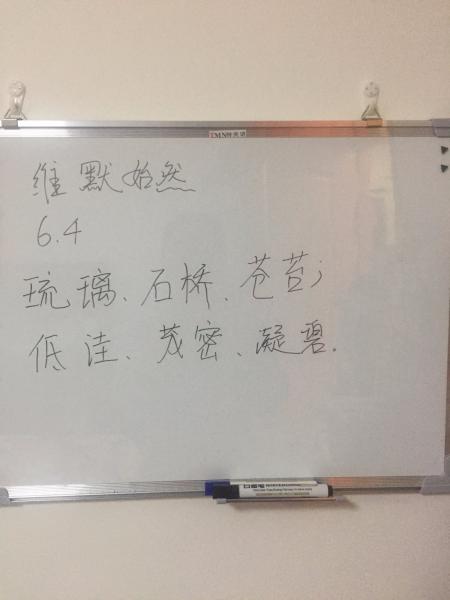 维默始然
6.4
琉璃、石桥、苍苔;
低洼、茂密、凝碧.